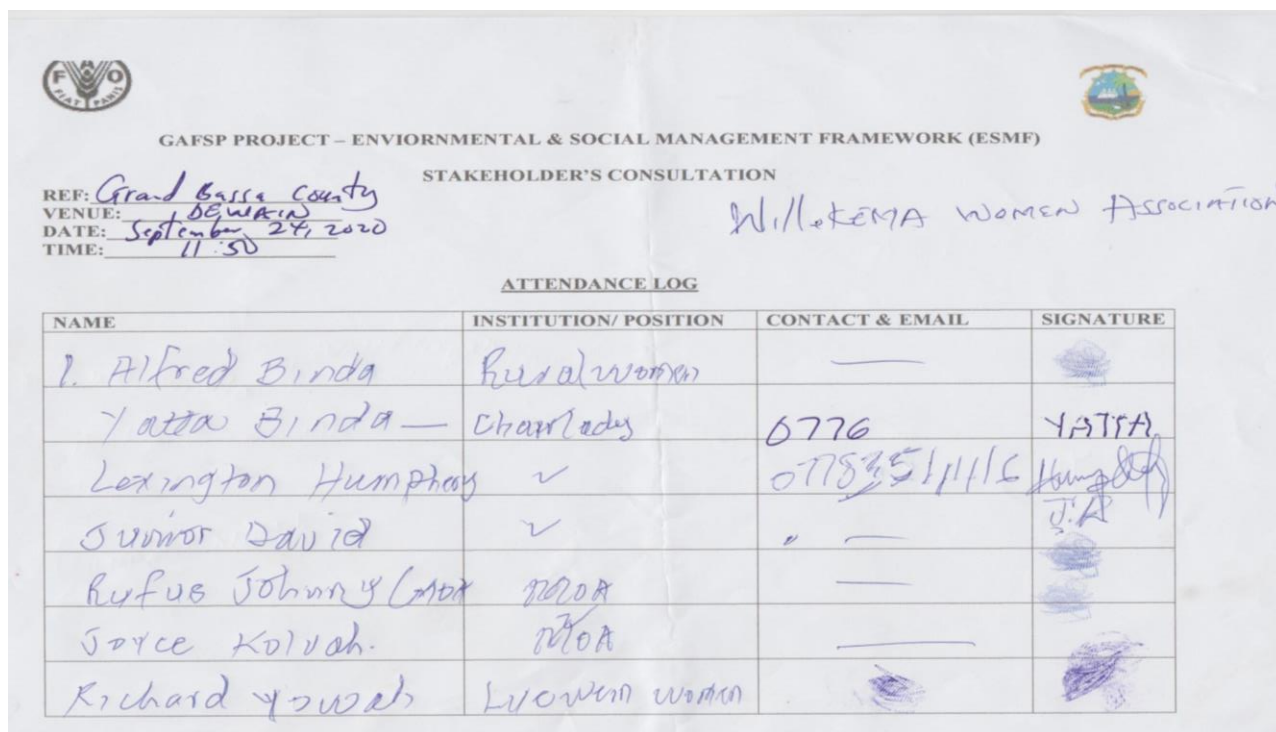 FAO
FIAT PANIS
GAFSP PROJECT – ENVIORNMENTAL & SOCIAL MANAGEMENT FRAMEWORK (ESMF)
STAKEHOLDER'S CONSULTATION
REF: Grand Bassa County
VENUE: DEWAIN
DATE: September 24, 2020
TIME: 11:50
WilleKEMA WOMEN ASSOCIATION
ATTENDANCE LOG
NAME INSTITUTION/ POSITION CONTACT & EMAIL SIGNATURE
1. Alfred Binda Rural women —
Yatta Binda — Chairlady 0776 YATTA
Lexington Humphery ✓
Junior David ✓ " — J.D
Rufus Johnny MOA —
Joyce Kolvah. MOA —
Richard Yowah women